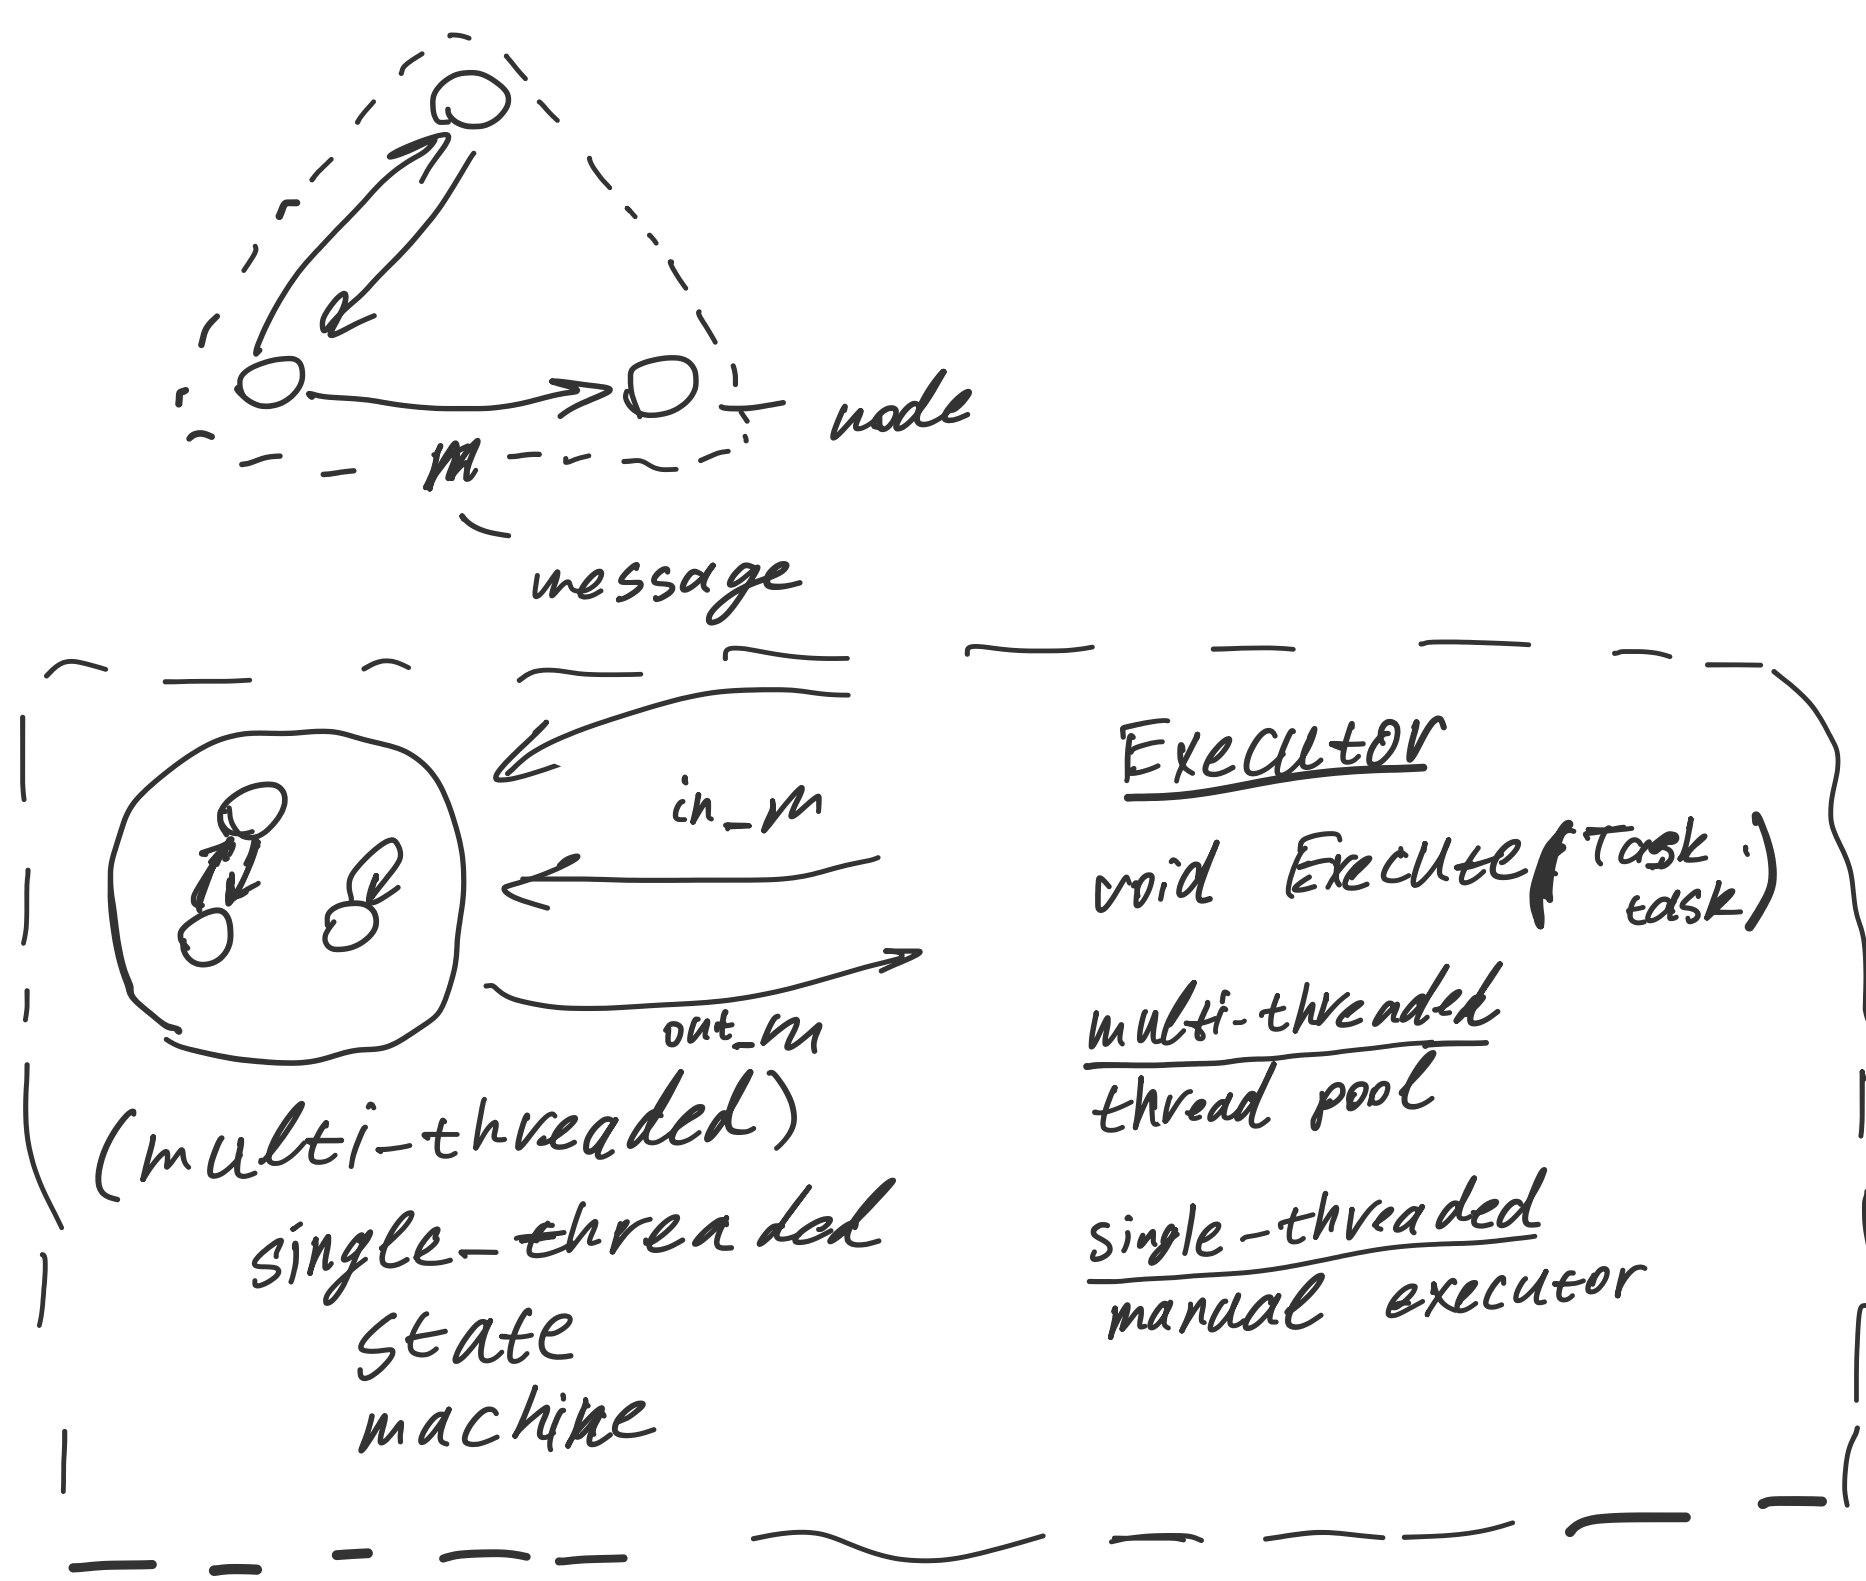 node
m
message
in_m
out_m
(multi-threaded)
single-threaded
state
machine
Executor
void Execute(Task
task)
multi-threaded
thread pool
single-threaded
manual executor